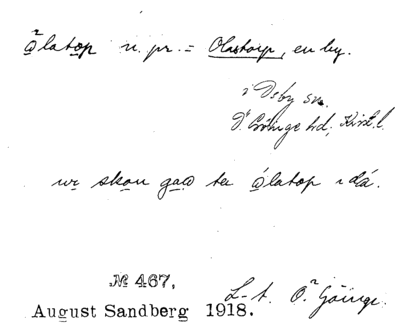 ålatop n. pr. = Olastorp, en by.
i Osby sn.
Ö. Göinge hd, Krist. l.
wi skou gao te ålatop i då.
№ 467,
L-t. Ö. Göinge.
August Sandberg 1918.